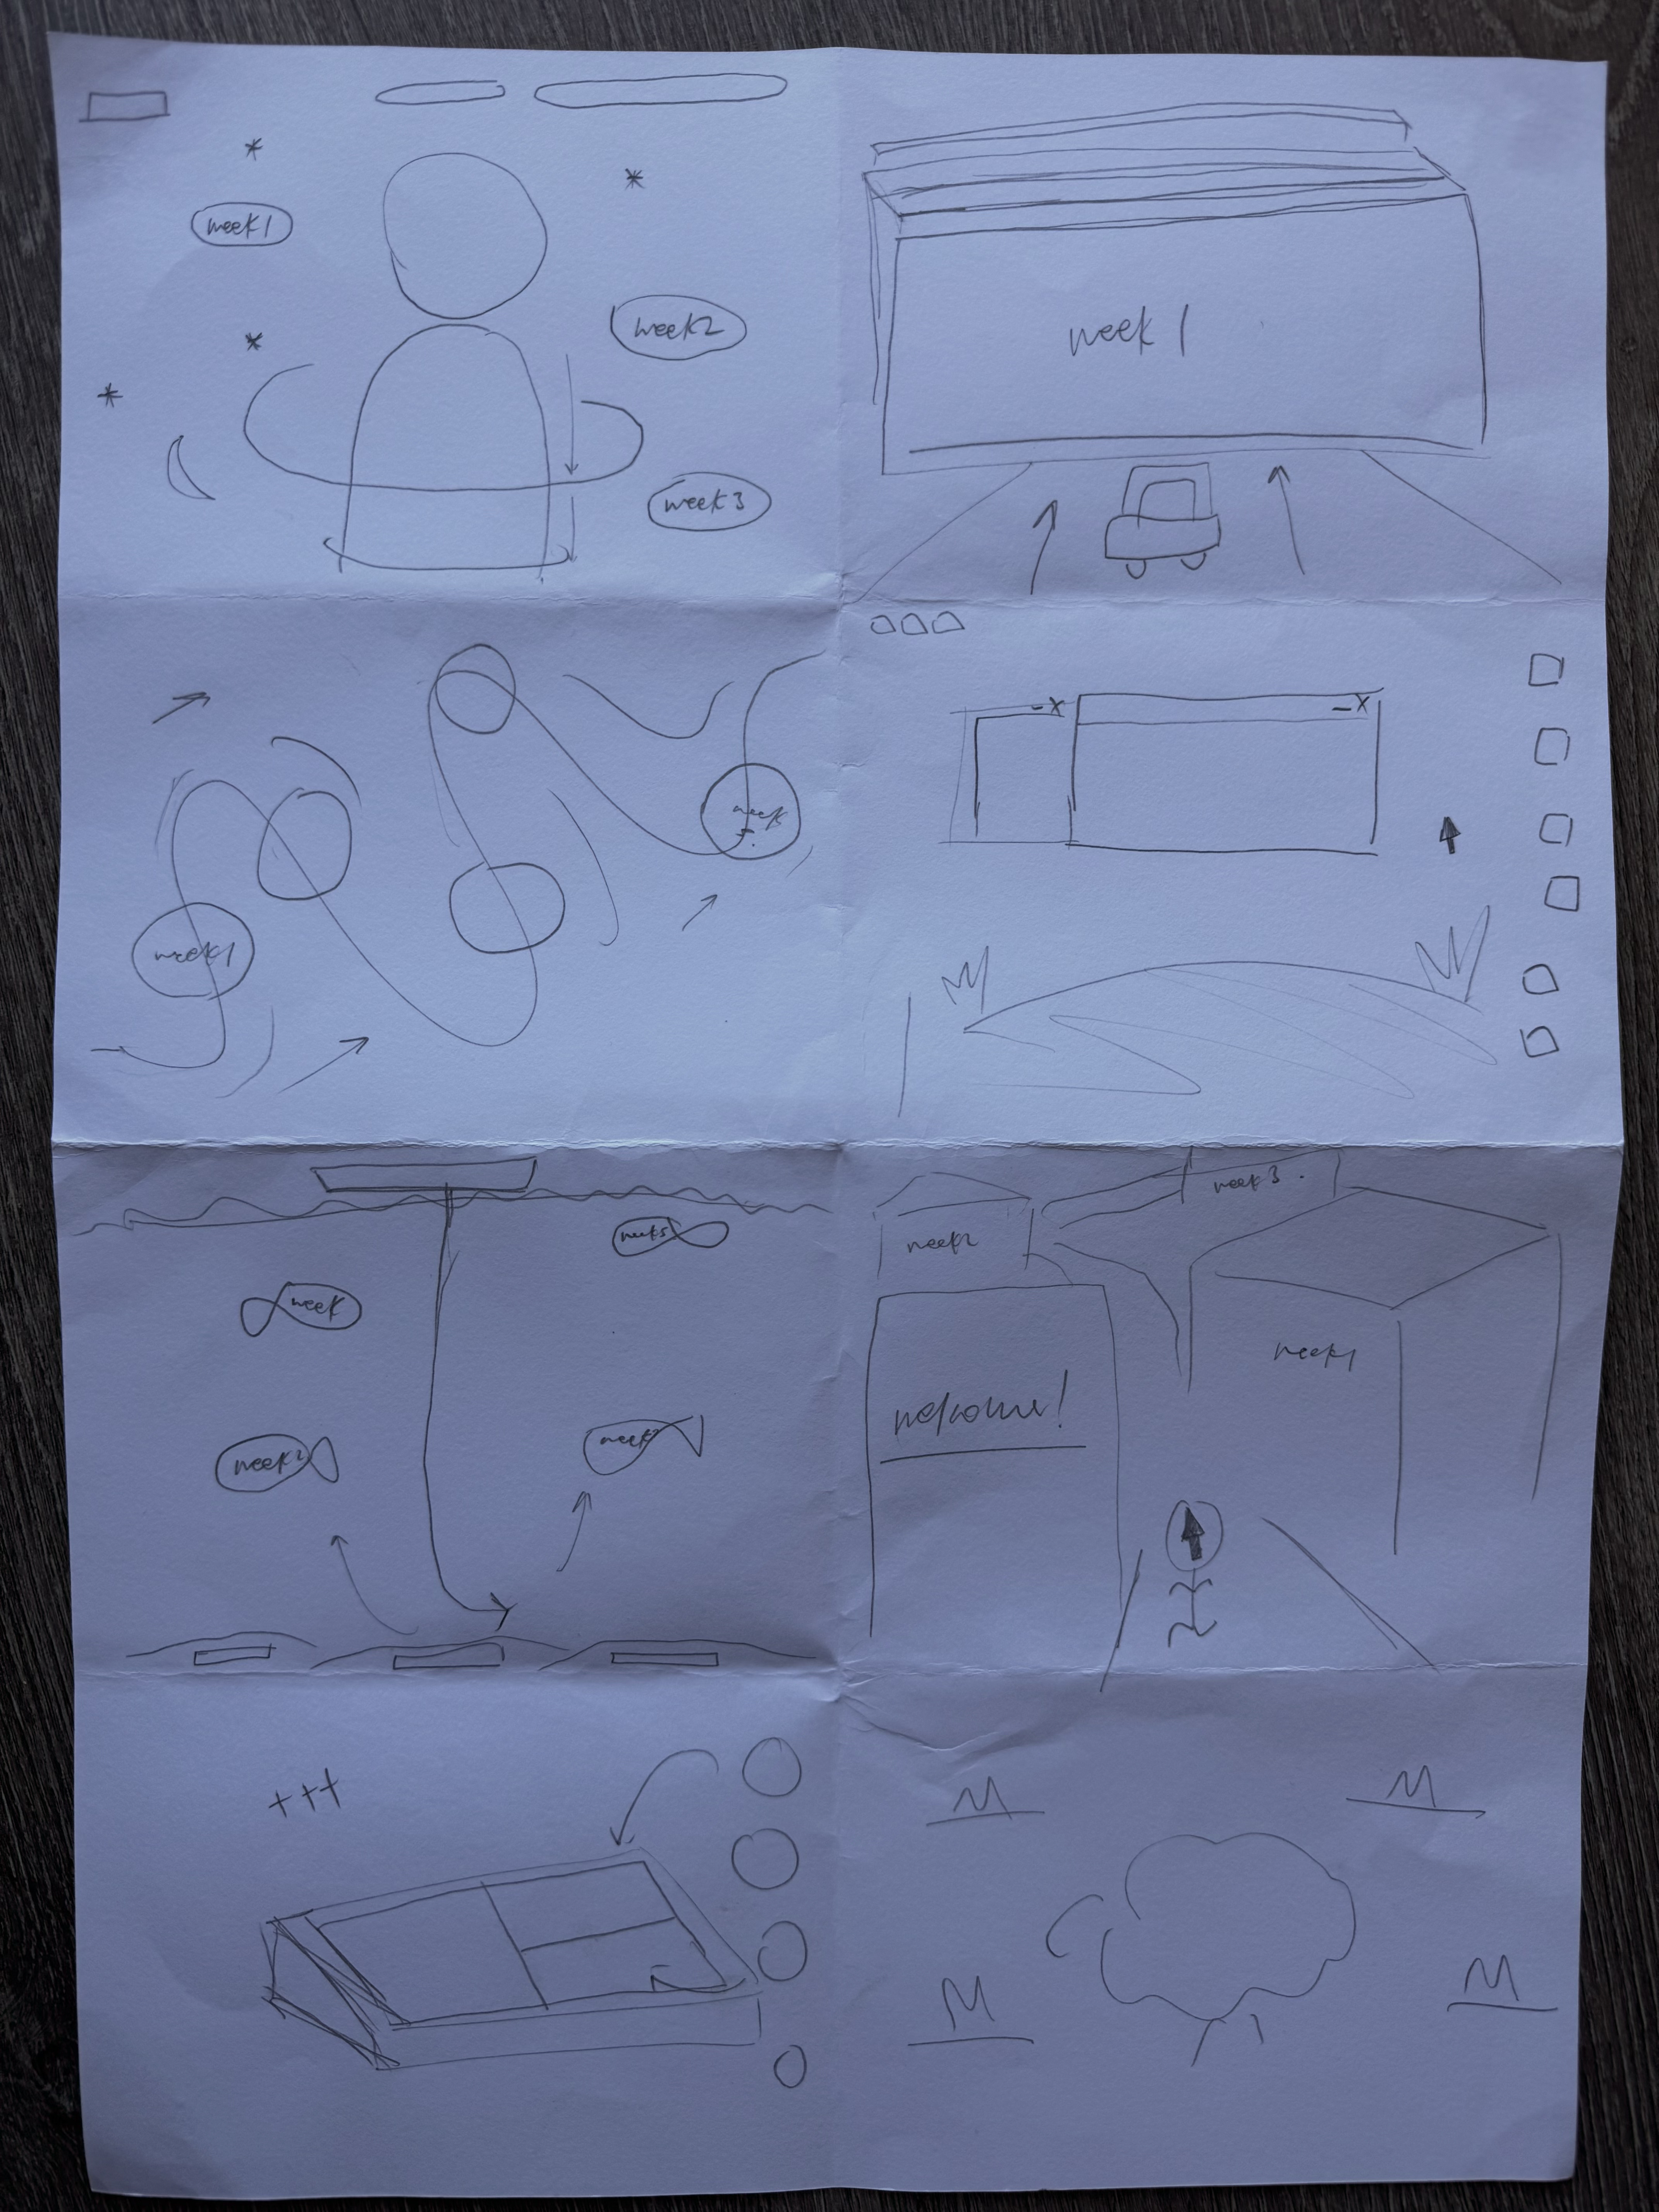 week1
week2
week3
week 1
week1
week
- X
- X
week5
week
week2
week
week2
week3.
week1
welcome!